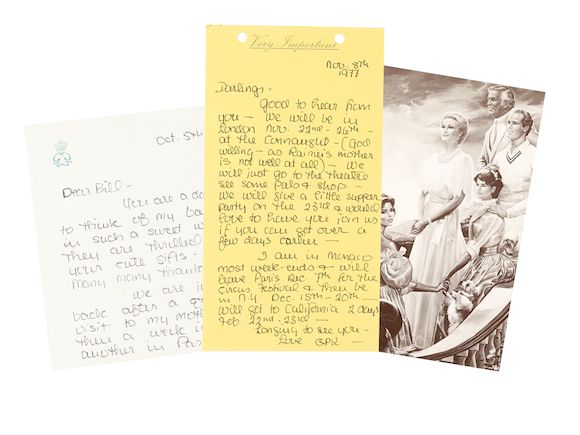 Oct. 5th
Dear Bill-
You are a da
to think of my ba
in such a sweet w
They are thrilled
your cute gifts -
Many many thank
We are j
back after a q
visit to my moth
then a week in
another in Par
Very Important
Nov. 8th
1977
Darlings-
Good to hear from
you - We will be in
London Nov. 22nd - 26th -
at the Connaught - (God
willing - as Rainier's mother
is not well at all) - We
will just go to the theatre
see some pals & shop -
We will give a little supper
party on the 23rd & would
love to have you join us
if you can get over a
few days earlier -
I am in Monaco
most week-ends & will
leave Paris Dec 7th for the
Circus Festival & then be
in N.Y. Dec. 15th - 20th -
Will get to California 2 days
Feb. 22nd - 23rd -
Longing to see you -
Love GPK -